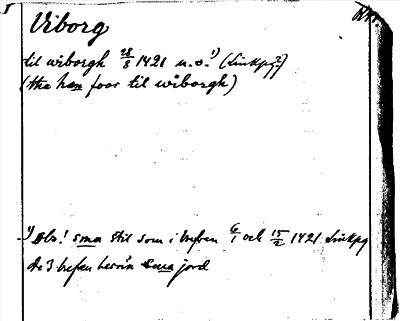 Viborg
til wiborgh 28/8 1421 u.o.¹) (Linkpg?)
(tha han foor til wiborgh)
¹) Obs! sma stil som i brefven 6/1 och 15/2 1421 Linkpg
de 3 brefven jord